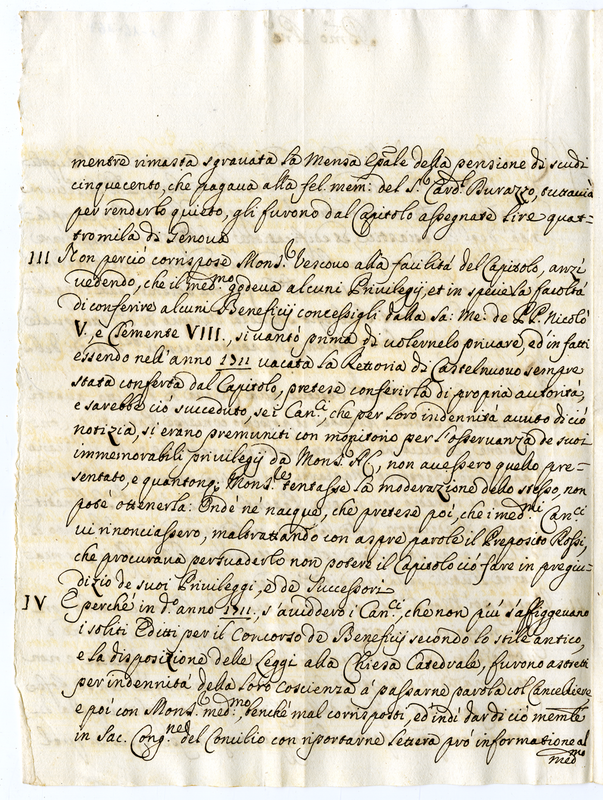 mentre rimasta sgravata la Mensa Ep̄ale della pensione di scudi
cinquecento, che pagava alla fel. mem: del S.r Card.l Durazzo, tuttavia
per renderlo quieto, gli furono dal Capitolo assegnate lire quat=
tromila di Genova
III Non perciò corrispose Mons.r Vescovo alla facilità del Capitolo, anzi
vedendo, che il med.mo godeva alcuni Privilegij, et in specie la facoltà
di conferire alcuni Beneficij concessigli dalla sa: Me: de P.P. Nicolò
V. e Clemente VIII., si vantò prima di volernelo privare, ed in fatti
essendo nell'anno 1711 vacata la Rettoria di Castelnuovo sempre
stata conferta dal Capitolo, pretese conferirla di propria autorità,
e sarebbe ciò succeduto, se i Can.ci, che per loro indennità avuto di ciò
notizia, si erano premuniti con monitorio per l'osservanza de suoi
immemorabili privilegij da Mons. A C, non avessero quello pre=
sentato, e quantonq; Mons.re tentasse la moderazione dello stesso, non
potè ottenerla: Onde nè nacque, che pretese poi, che i med.mi Can.ci
vi rinonciassero, maltrattando con aspre parole il Preposito Rossi,
che procurava persuaderlo non potere il Capitolo ciò fare in pregiu=
dizio de suoi Privileggi, e de Successori
IV E perchè in d.o anno 1711. s'aviddero i Can.ci, che non più s'affiggevano
i soliti Editti per il Concorso de Beneficij secondo lo stile antico,
e la disposizione delle Leggi alla Chiesa Catedrale, furono astretti
per indennità della loro coscienza à passarne parola col Cancelliere
e poi con Mons.r med.mo benchè mal corrisposti, ed indi dar di ciò
in Sac. Cong.ne del Concilio con riportarne lettera prò informatione al
med.mo